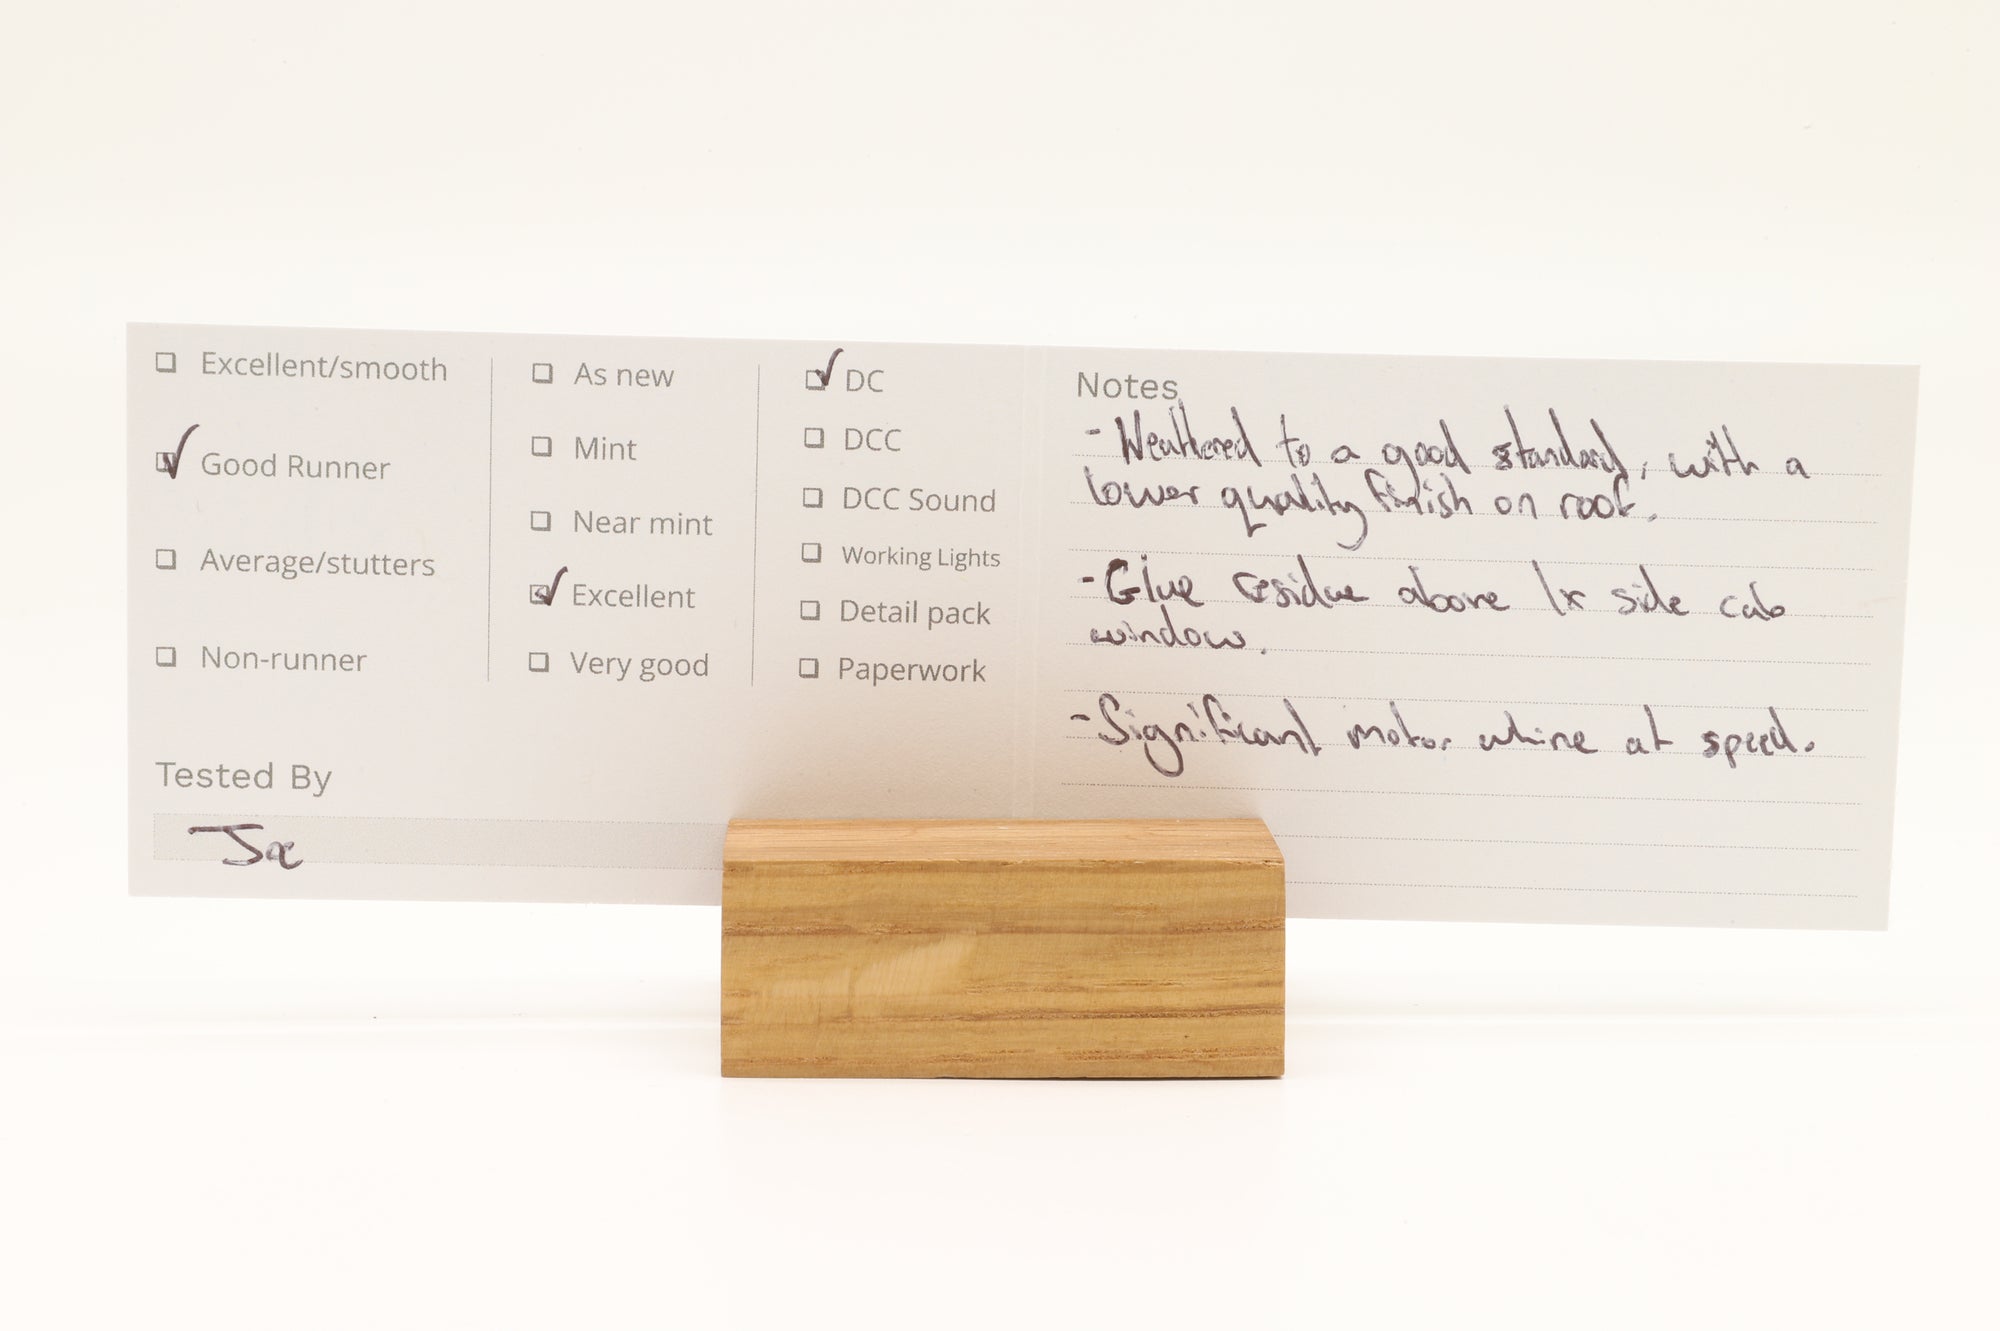 Excellent/smooth
Good Runner
Average/stutters
Non-runner
As new
Mint
Near mint
Excellent
Very good
DC
DCC
DCC Sound
Working Lights
Detail pack
Paperwork
Tested By
Joe
Notes
- Weathered to a good standard, with a
lower quality finish on roof.
- Glue residue above 1x side cab
window.
- Significant motor whine at speed.